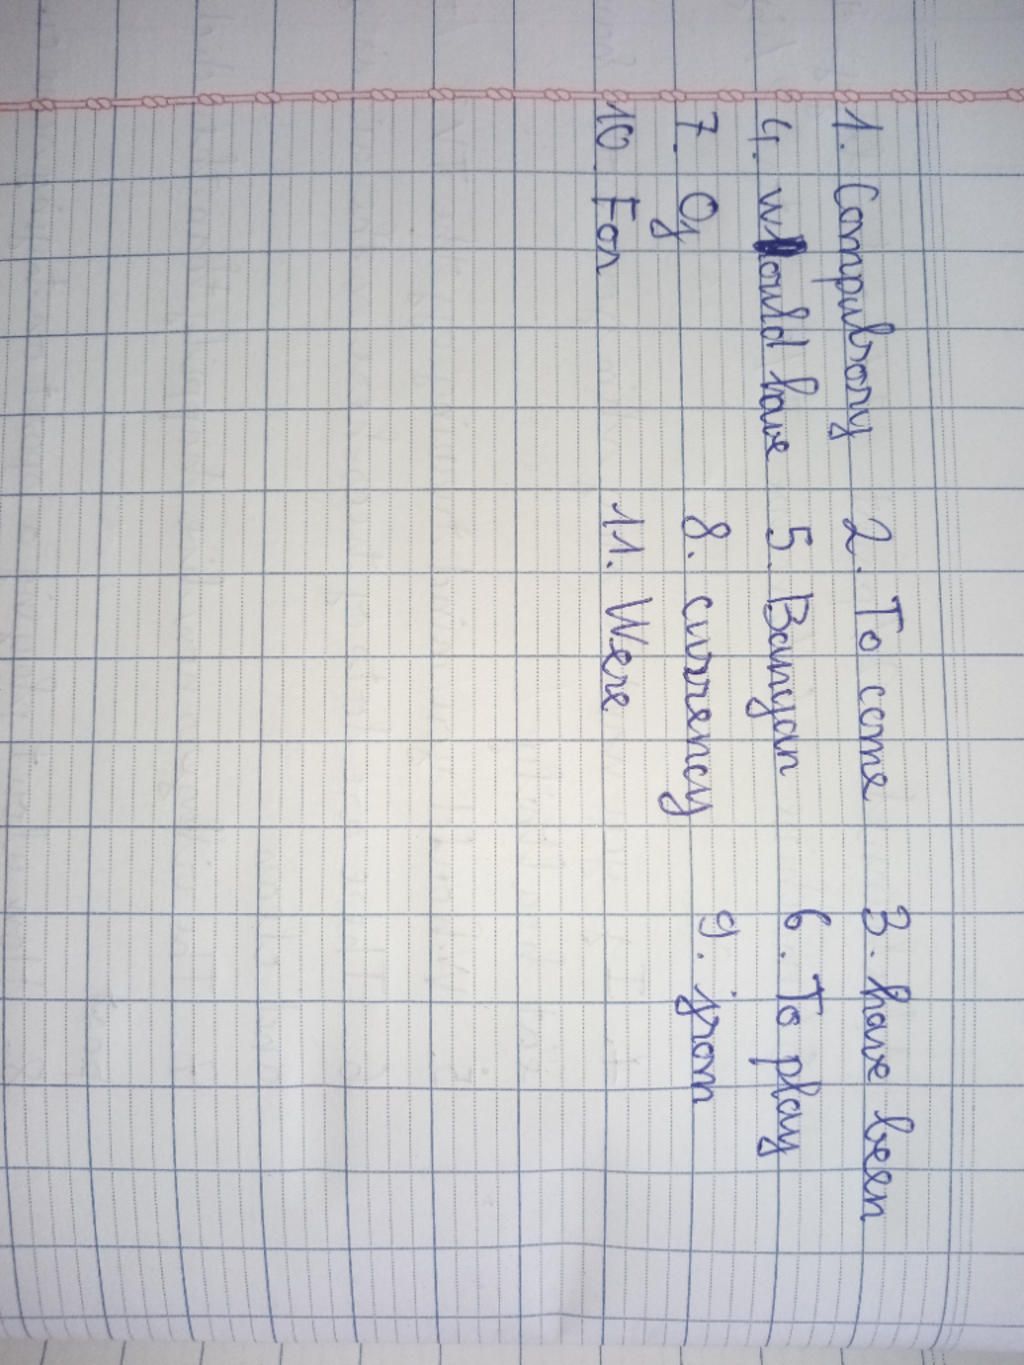 1. Compulsory 2. To come 3. have been
4. would have 5. Banyan 6. To play
7. Of 8. currency 9. from
10. For 11. Were